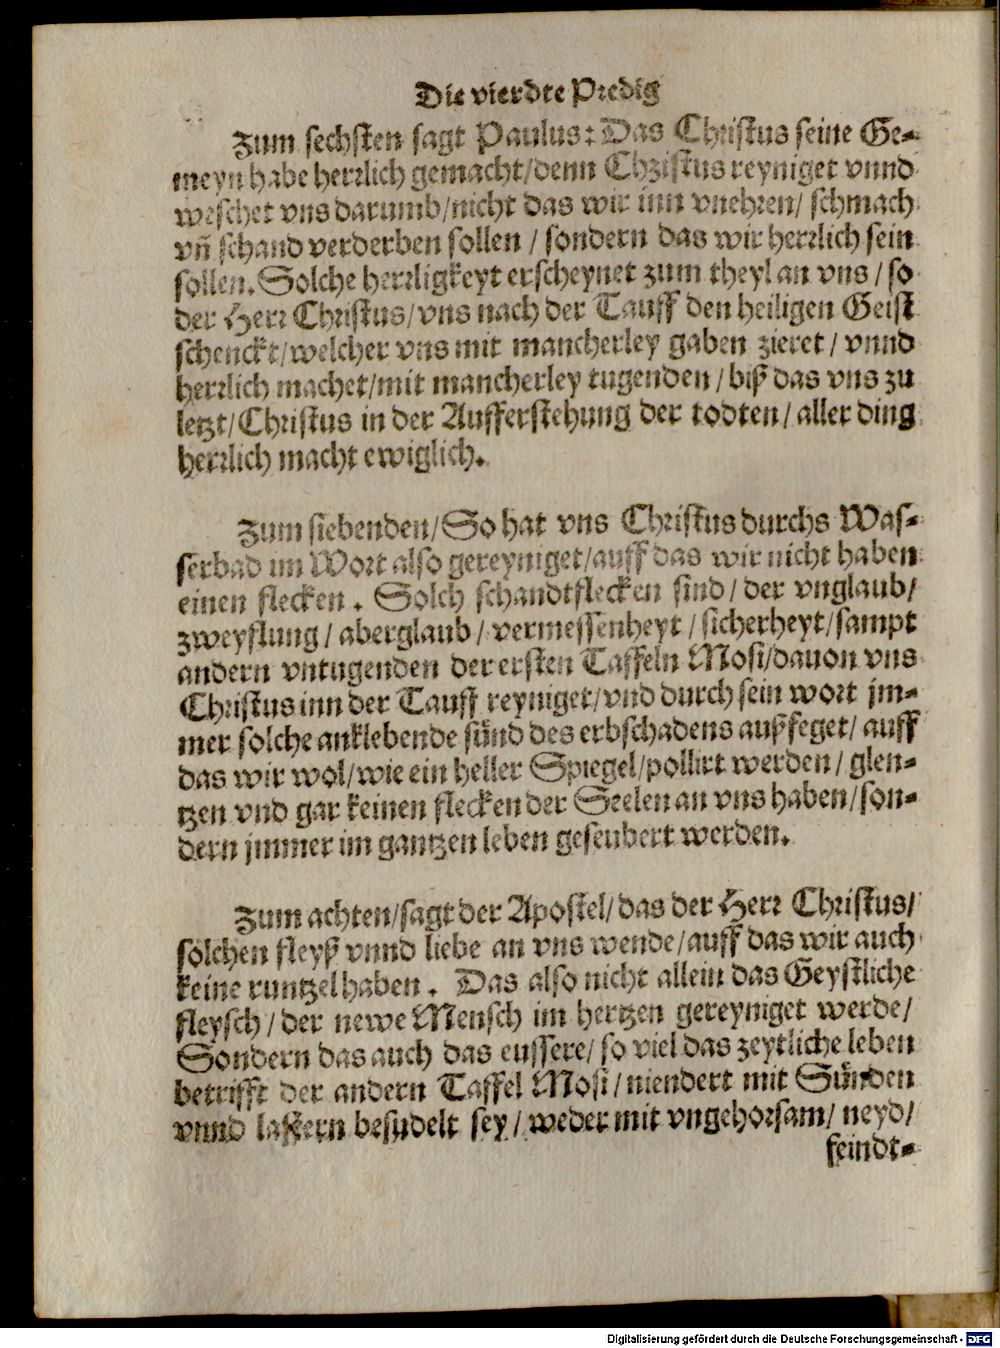 Die vierdte Predig
Zum sechsten sagt Paulus: Das Christus seine Ge-
meyn habe herrlich gemacht/denn Christus reyniget vnnd
weschet vns darumb/nicht das wir inn vnehren/ schmach
vñ schand verderben sollen / sondern das wir herrlich sein
sollen. Solche herrligkeyt erscheynet zum theyl an vns / so
der Herr Christus/vns nach der Tauff den heiligen Geist
schenckt/welcher vns mit mancherley gaben zieret / vnnd
herrlich machet/mit mancherley tugenden / biß das vns zu
letzt/Christus in der Aufferstehung der todten/ aller ding
herrlich macht ewiglich.
Zum siebenden/So hat vns Christus durchs Was-
serbad im Wort also gereyniget/auff das wir nicht haben
einen flecken . Solch schandtflecken sind / der vnglaub/
zweyflung / aberglaub / vermessenheyt / sicherheyt/sampt
andern vntugenden der ersten Taffeln Mosi/dauon vns
Christus inn der Tauff reyniget/vnd durch sein wort jm-
mer solche anklebende sünd des erbschadens außfeget/ auff
das wir wol/wie ein heller Spiegel/pollirt werden / glen-
tzen vnd gar keinen flecken der Seelen an vns haben/son-
dern jmmer im gantzen leben geseubert werden.
Zum achten/sagt der Apostel/das der Herr Christus/
solchen fleyß vnnd liebe an vns wende/auff das wir auch
keine runtzel haben . Das also nicht allein das Geystliche
fleysch / der newe Mensch im hertzen gereyniget werde/
Sondern das auch das eussere/ so viel das zeytliche leben
betrifft der andern Taffel Mosi / niendert mit Sünden
vnnd lastern besudelt sey / weder mit vngehorsam/ neyd/
feindt-
Digitalisierung gefördert durch die Deutsche Forschungsgemeinschaft - DFG